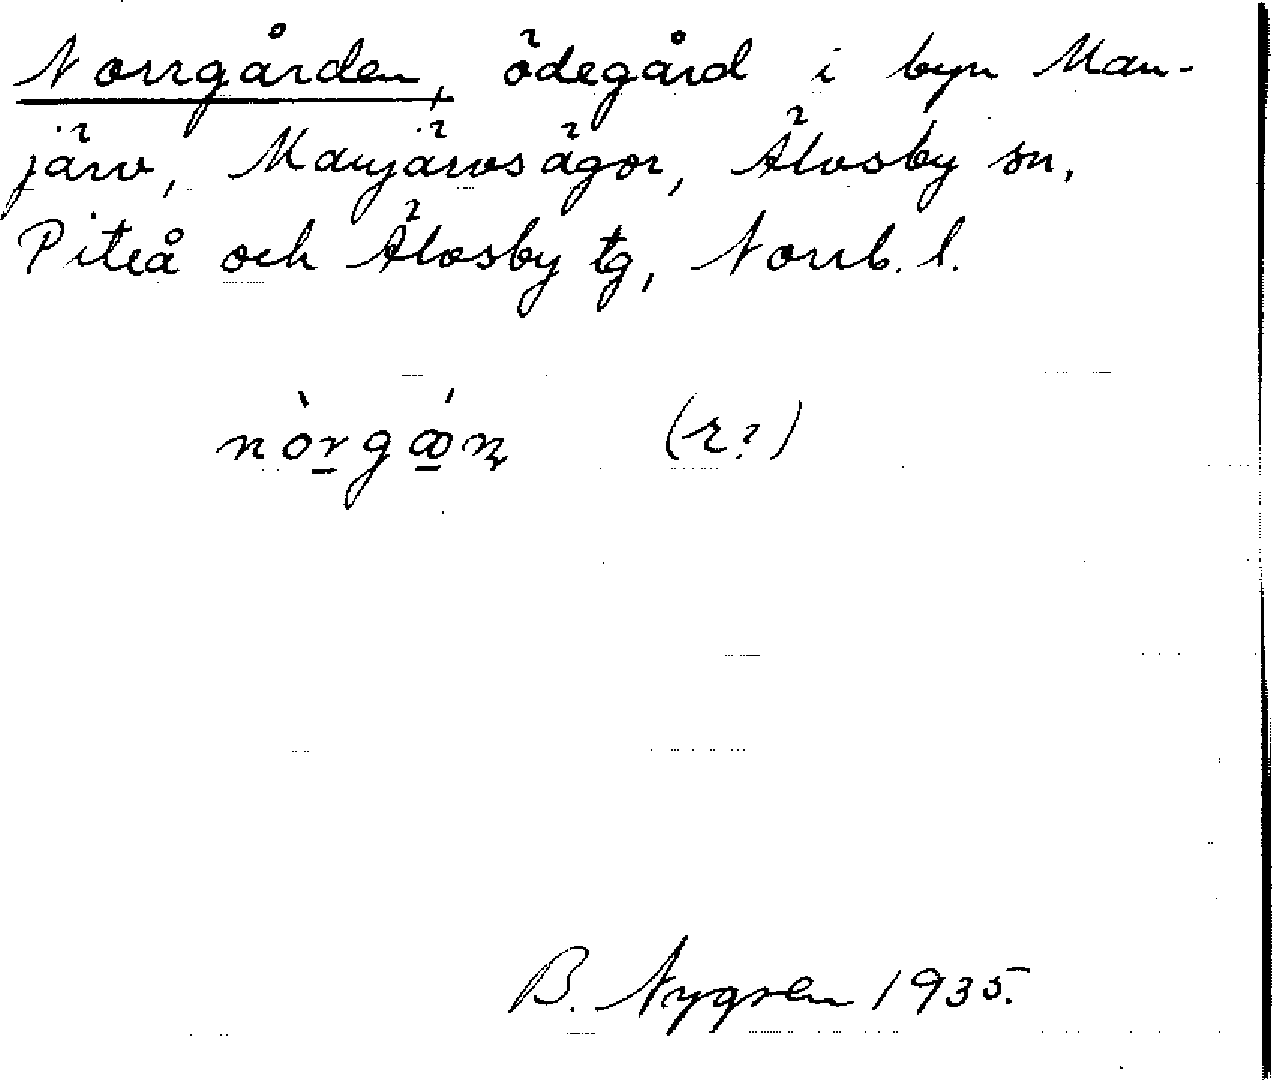 Norrgården, ödegård i byn Man-
järv, Manjärvs ägor, Älvsby sn,
Piteå och Älvsby tg, Norrb. l.
(r?)
B. Nygren 1935.